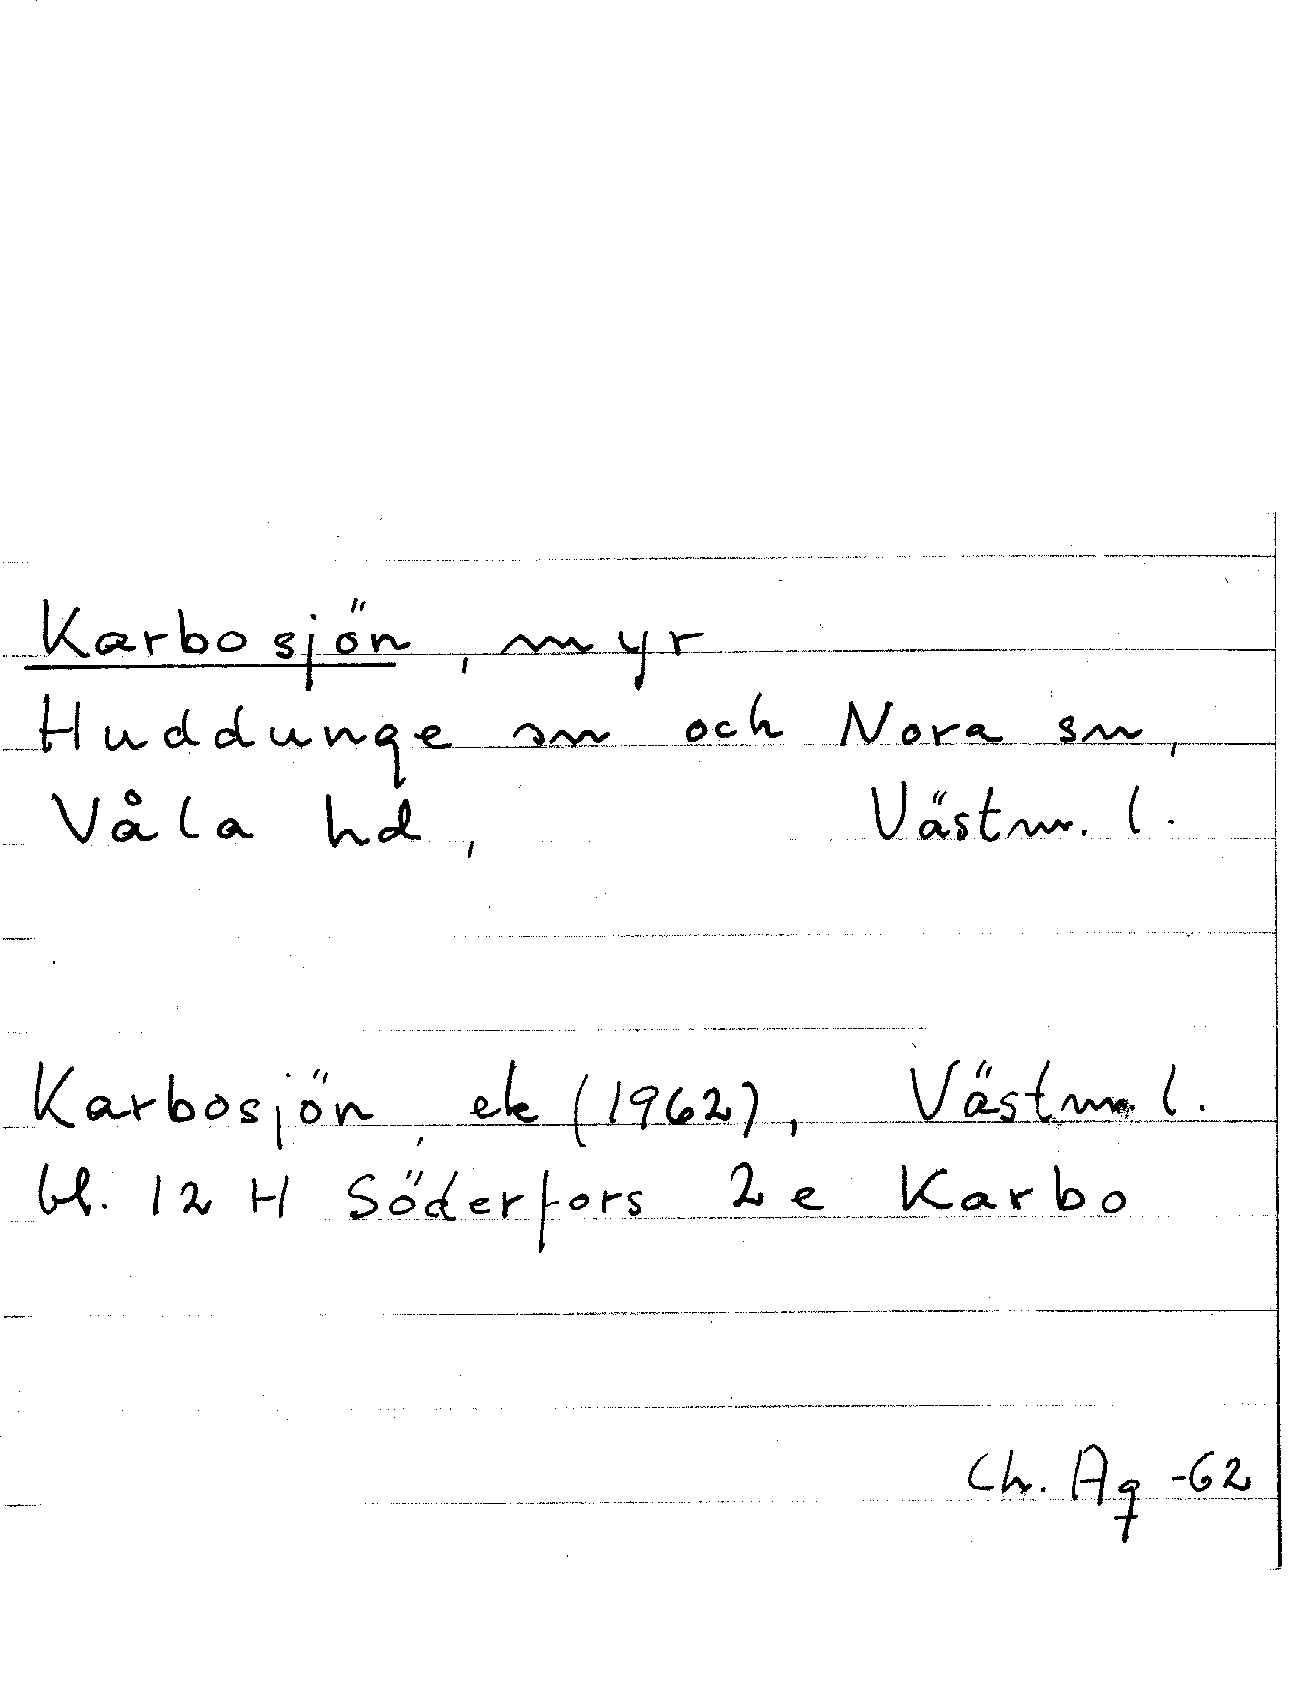 Karbosjön, myr
Huddunge sn och Nora sn,
Våla hd, Västm. l.
Karbosjön, ek (1962), Västm l.
bl. 12 H Söderfors 2 e Karbo
Ch. Ag -62